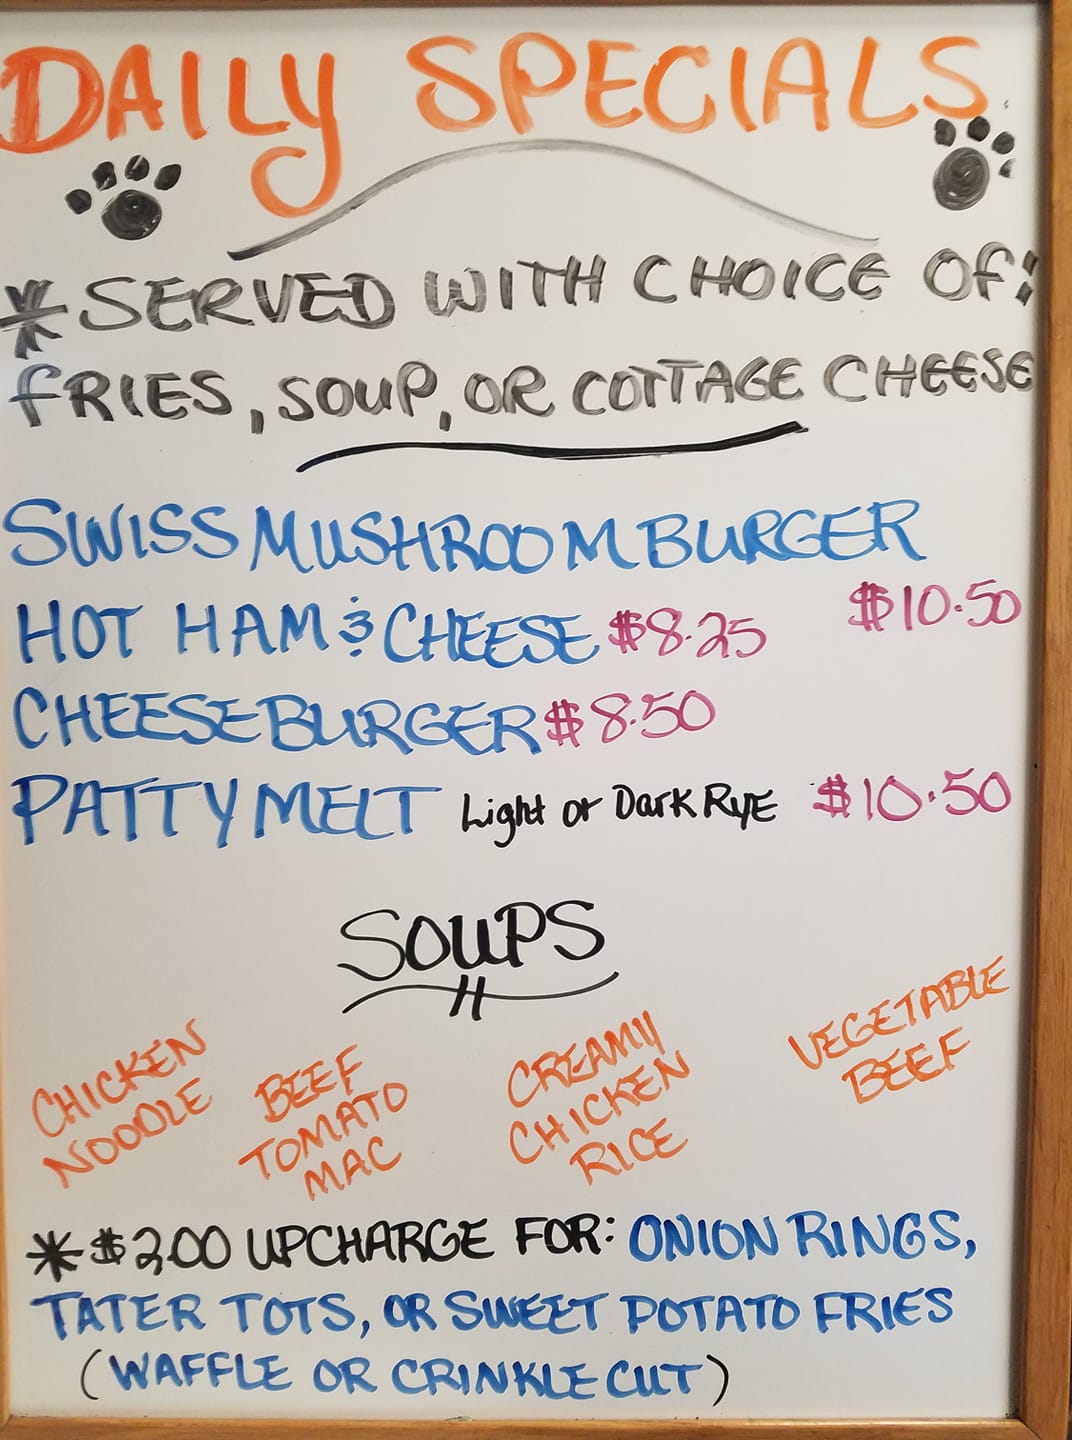 DAILY SPECIALS
*SERVED WITH CHOICE OF:
FRIES, SOUP, OR COTTAGE CHEESE
SWISS MUSHROOM BURGER
$10.50
HOT HAM & CHEESE $8.25
CHEESEBURGER $8.50
PATTY MELT Light or Dark Rye $10.50
SOUPS
CHICKEN
NOODLE
BEEF
TOMATO
MAC
CREAMY
CHICKEN
RICE
VEGETABLE
BEEF
*$2.00 UPCHARGE FOR: ONION RINGS,
TATER TOTS, OR SWEET POTATO FRIES
(WAFFLE OR CRINKLE CUT)